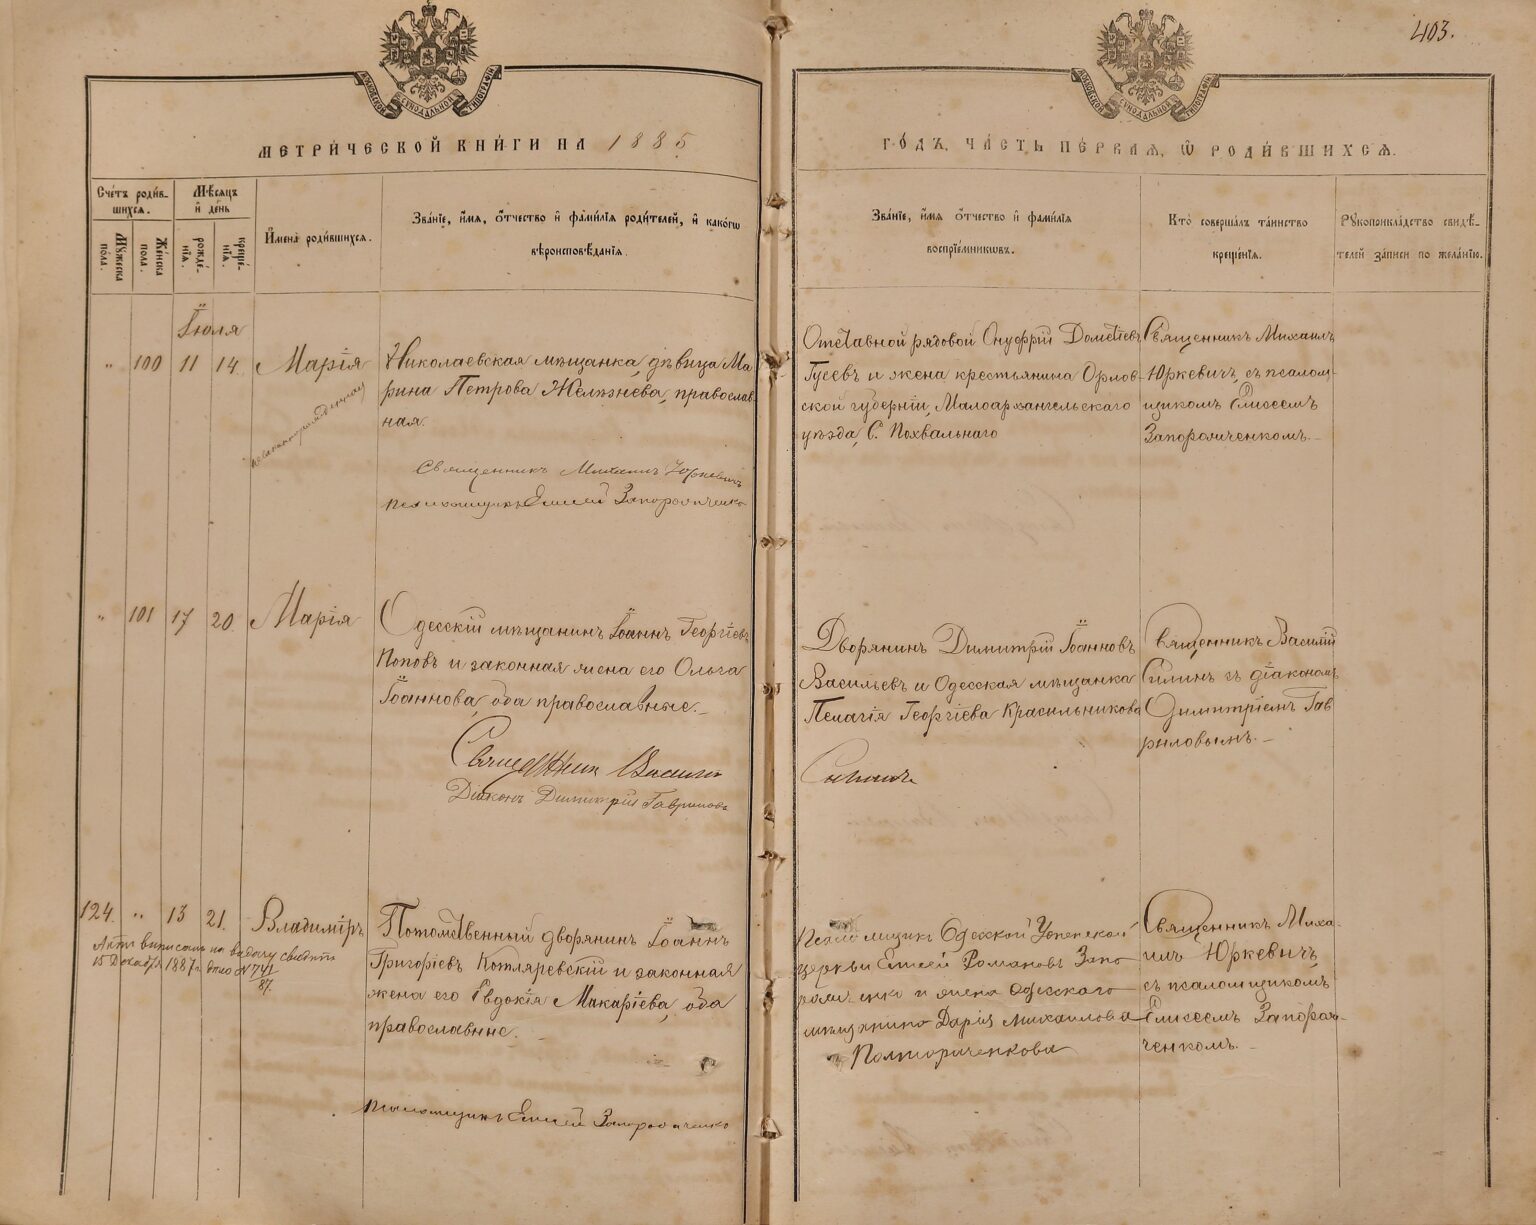 403.
МОСКОВСКОЙ СѴНОДАЛЬНОЙ ТИПОГРАФІИ
МОСКОВСКОЙ СѴНОДАЛЬНОЙ ТИПОГРАФІИ
МЕТРИ́ЧЕСКОЙ КНИ́ГИ НА 1885
ГО́ДЪ, ЧА́СТЬ ПЕ́РВАѦ, Ѡ РОДИ́ВШИХСѦ.
Сче́тъ роди́в-
шихсѧ.
Мѣ́сѧцъ
и҆ де́нь
Мꙋжеска пола.
Же́нска пола.
рожде́-
нїѧ.
креще́-
нїѧ.
И҆мена̀ роди́вшихсѧ.
Зва́нїе, и҆́мѧ, ѻ҆́тчество и҆ фами́лїѧ роди́телей, и҆ како́гѡ
вѣроисповѣ́данїѧ.
Зва́нїе, и҆́мѧ ѻ҆́тчество и҆ фами́лїѧ
воспрїе́мникѡвъ.
Кто̀ соверша́лъ та́инство
креще́нїѧ.
Рꙋкоприкла́дство свидѣ́-
телей за́писи по жела́нїю.
Іюля
" 100 11 14 Марія
незаконнорожденная
Николаевская мѣщанка, дѣвица Ма-
рина Петрова Желѣзнева, православ-
ная.
Священникъ Михаилъ Юркевичъ
псаломщикъ Елисей Запорожченко
Отставной рядовой Онуфрій Дометіевъ
Гусевъ и жена крестьянина Орлов-
ской губерніи, Малоархангельскаго
уѣзда, С. Похвальнаго
Священникъ Михаилъ
Юркевичъ, съ псалом-
щикомъ Елисеемъ
Запорожченкомъ.
" 101 17 20 Марія
Одесскій мѣщанинъ Іоаннъ Георгіевъ
Поповъ и законная жена его Ольга
Іоаннова, оба православные.
Священник Василій
Діаконъ Димитрій Гавриловъ
Дворянинъ Димитрій Іоанновъ
Васильевъ и Одесская мѣщанка
Пелагія Георгіева Красильникова
Силинъ
Священникъ Василій
Силинъ съ діакономъ
Димитріемъ Гав
риловымъ.
124. " 13 21. Владиміръ
Актъ выписанъ на выдачу свидѣт.
15 Декабря 1887 г. дѣло № 741
87.
Потомственный дворянинъ Іоаннъ
Григоріевъ Котляревскій и законная
жена его Евдокія Макаріева, оба
православные.
псаломщикъ Елисей Запорожченко
Псаломщикъ Одесской Успенской
церкви Елисей Романовъ Запо
рожченко и жена Одесского
мѣщанина Дарія Михаилова
Полториченкова
Священникъ Миха-
илъ Юркевичъ,
съ псаломщикомъ
Елисеемъ Запорож-
ченкомъ.